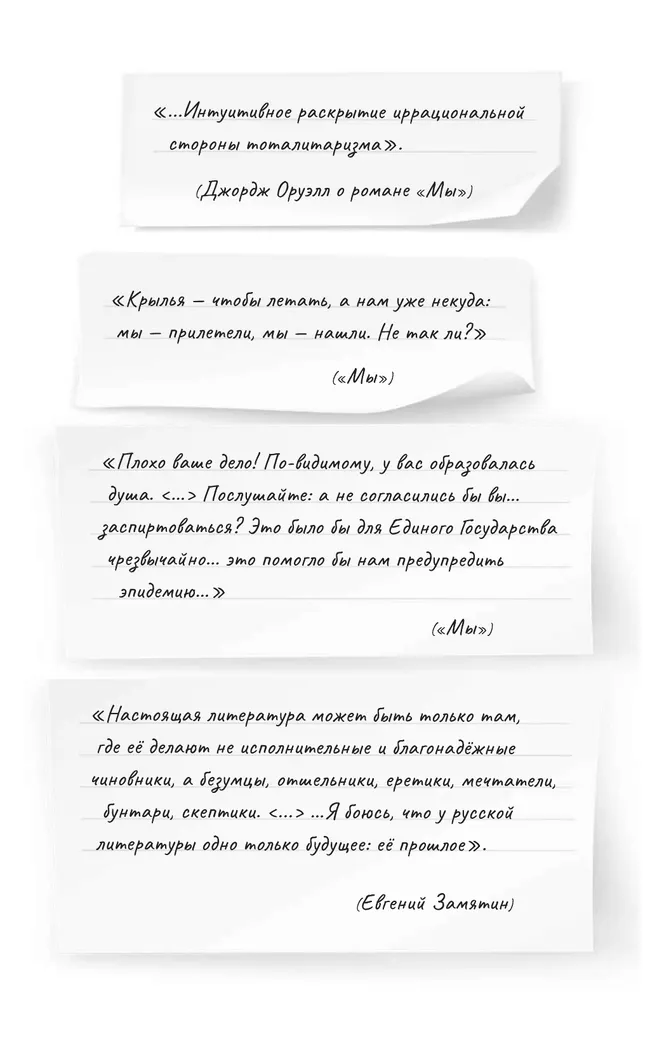 «...Интуитивное раскрытие иррациональной
стороны тоталитаризма».
(Джордж Оруэлл о романе «Мы»)
«Крылья — чтобы летать, а нам уже некуда:
мы — прилетели, мы — нашли. Не так ли?»
(«Мы»)
«Плохо ваше дело! По-видимому, у вас образовалась
душа. <...> Послушайте: а не согласились бы вы...
заспиртоваться? Это было бы для Единого Государства
чрезвычайно... это помогло бы нам предупредить
эпидемию...»
(«Мы»)
«Настоящая литература может быть только там,
где её делают не исполнительные и благонадёжные
чиновники, а безумцы, отшельники, еретики, мечтатели,
бунтари, скептики. <...> ...Я боюсь, что у русской
литературы одно только будущее: её прошлое».
(Евгений Замятин)